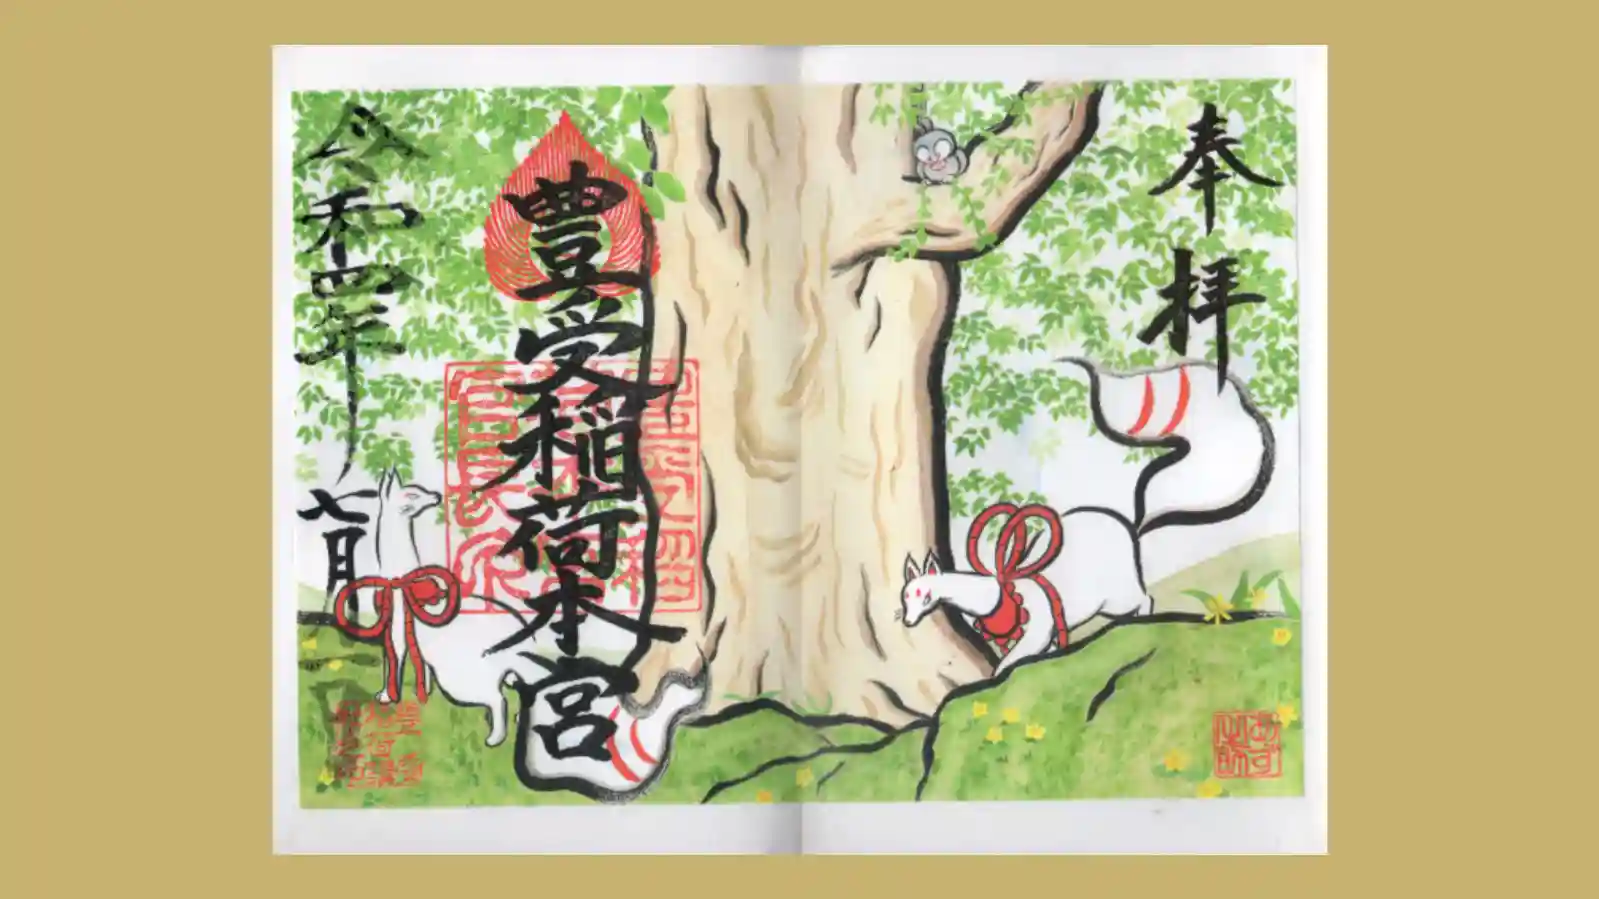 奉拝
豊受稲荷本宮
令和四年七月